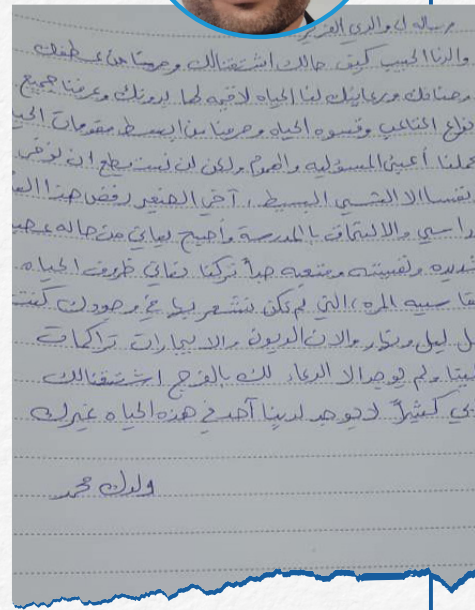 رسالة ل والدي العزيز
والدنا الحبيب كيف حالك اشتقنالك وحرمنا من عطفك
وحنانك ورعايتك لنا الحياه لاقيمه لها بدونك وعرفنا جميع
انواع المتاعب وقسوه الحياه وحرمنا من ابسط مقومات
المسؤليه والهموم ولكن لن نستطيع ان نوفر
الا الشيء البسيط ، آخي الصغير رفض هذا
والالتحاق بالمدرسة وأصبح يعاني من حاله
شديده ونفسيته متعبه جداً تركنا نعاني ظروف الحياه
المره ، التي لم نكن نشعر بها في وجودك كنت
ليل ونهار والان الديون والايجارات تراكمات
ولم يوجد الا الدعاء لك بالفرج اشتقنالك
كثيراً لا يوجد لدينا آحد في هذه الحياه غيرك
ولدك محمد